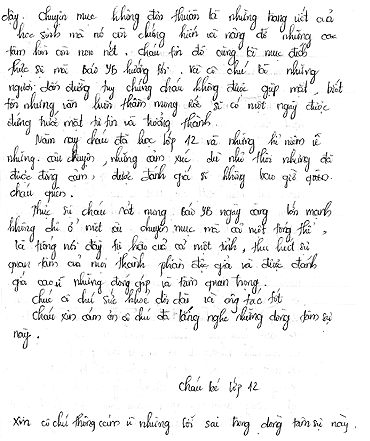 đây. Chuyên mục không đơn thuần là những trang viết của
học sinh mà nó còn chứng kiến và nâng đỡ những cao
tâm hồn còn non nớt. Cháu tin đó cũng là mục đích
thực sự mà báo YB hướng tới. Và cô chú là những
người dẫn đường tuy chúng cháu không được gặp mặt, biết
tên nhưng vẫn luôn thầm mong ước sẽ có một ngày được
đứng trước mặt tự tin và trưởng thành.
Năm nay cháu đã học lớp 12 và những kỉ niệm về
những câu chuyện, những cảm xúc dù nhỏ thôi nhưng đã
được đồng cảm, được đánh giá sẽ không bao giờ
cháu quên.
Thực sự cháu rất mong báo YB ngày càng lớn mạnh
không chỉ ở một chuyên mục mà cả một tổng thể,
là tiếng nói đầy tự hào của cả một tỉnh, thu hút sự
quan tâm của mọi thành phần độc giả và được đánh
giá cao về những đóng góp và tầm quan trọng.
Chúc cô chú sức khỏe dồi dào và công tác tốt
Cháu xin cảm ơn cô chú đã lắng nghe những dòng tâm sự
này.
Cháu bé lớp 12
Xin cô chú thông cảm về những lỗi sai trong dòng tâm sự này.